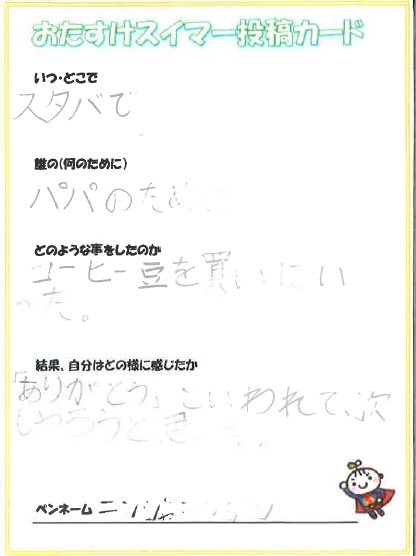 おたすけスイマー投稿カード
いつ・どこで
スタバで
誰の(何のために)
パパのために
どのような事をしたのか
コーヒー豆を買いにい
った。
結果、自分はどの様に感じたか
「ありがとう」といわれて、次
もつろうと思
ペンネーム ニンジャ